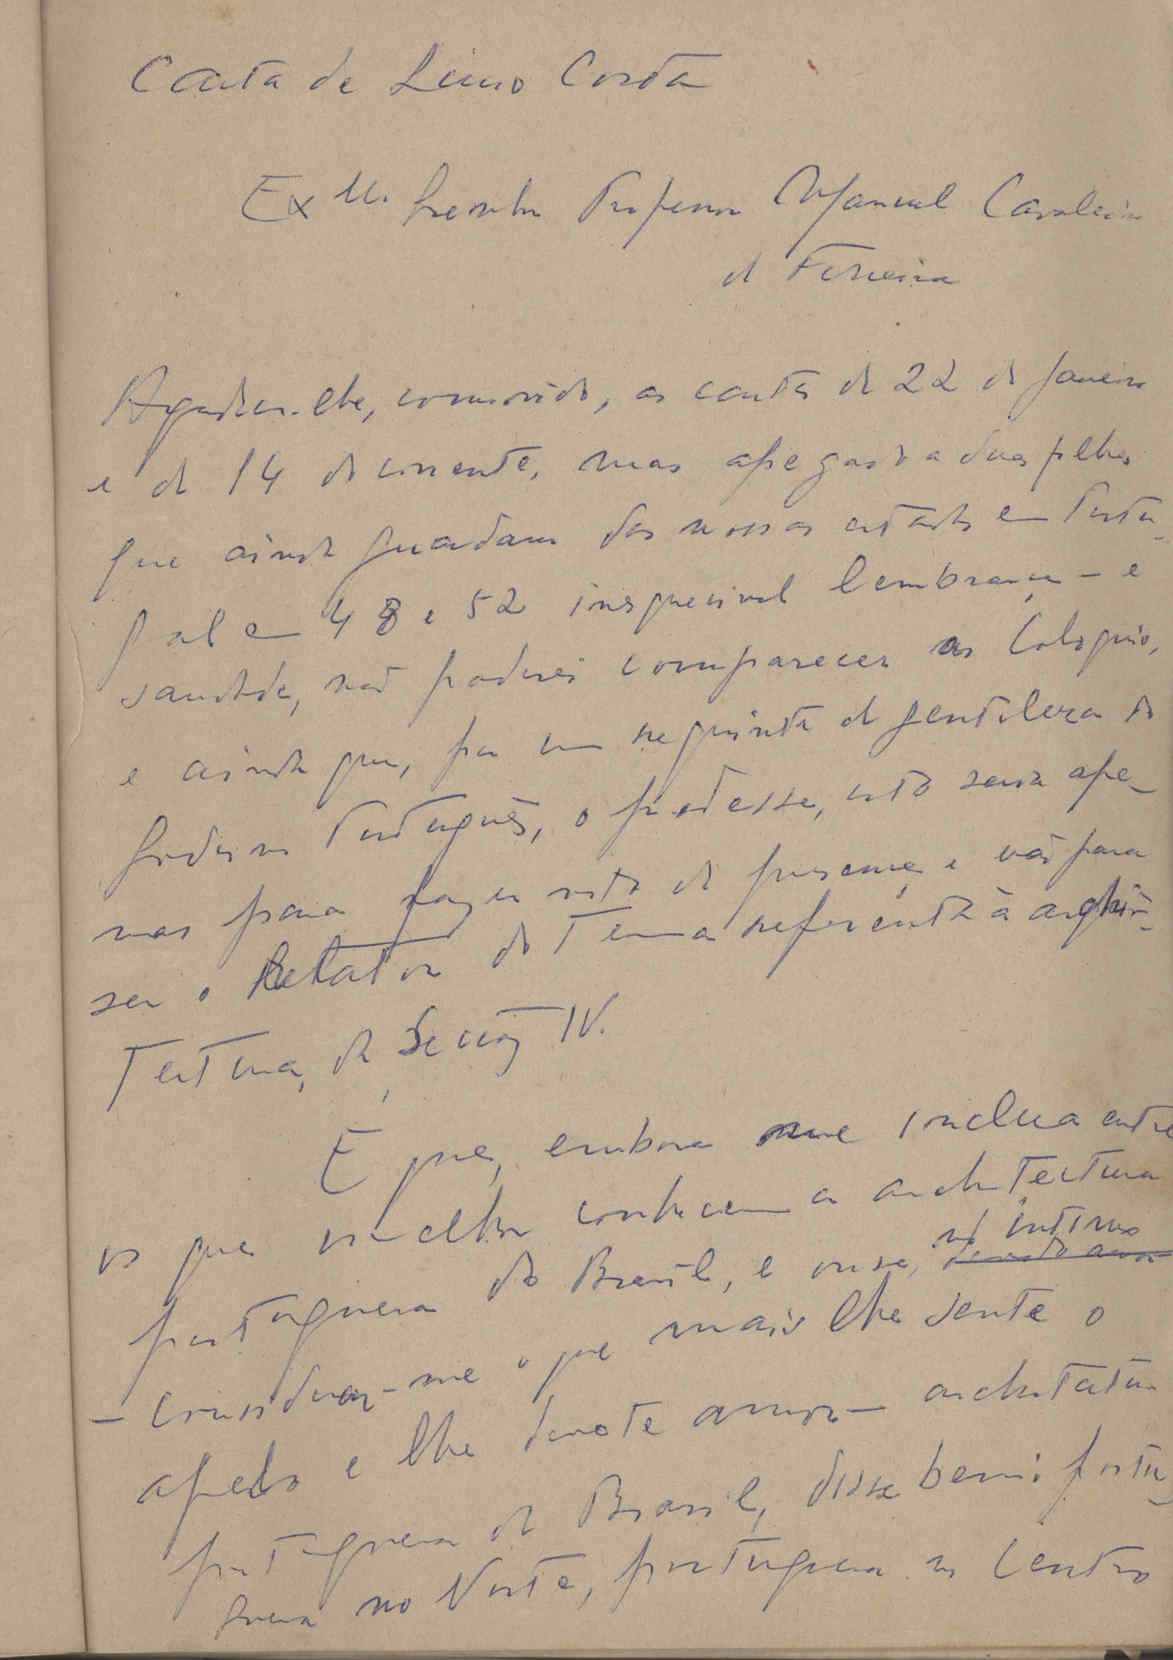 Carta de Lucio Costa
Exmo. Senhor Professor Manuel Cavaleiro
de Ferreira
Agradeço-lhe, comovido, as cartas de 22 de Janeiro
e de 14 do corrente, mas apegado a duas filhas
que ainda guardam das nossas estadas em Portu-
gal em 48 e 52 inesquecivel lembrança - e
saudade, não poderei comparecer ao Coloquio,
e ainda que, por um requinte de gentileza do
Governo Português, o pudesse, isto seria ape-
nas para fazer acto de presença e não para
ser o Relator do Tema referente à arqui-
tectura, da Secção IV.
É que, embora me inclua entre
os que melhor conhecem a architectura
portuguesa do Brasil, e ouse, no intimo
- considerar-me o que mais lhe sente o
apelo e lhe devote amor - architetura
portuguesa do Brasil, disse bem: portu-
guesa no Norte, portuguesa no Centro